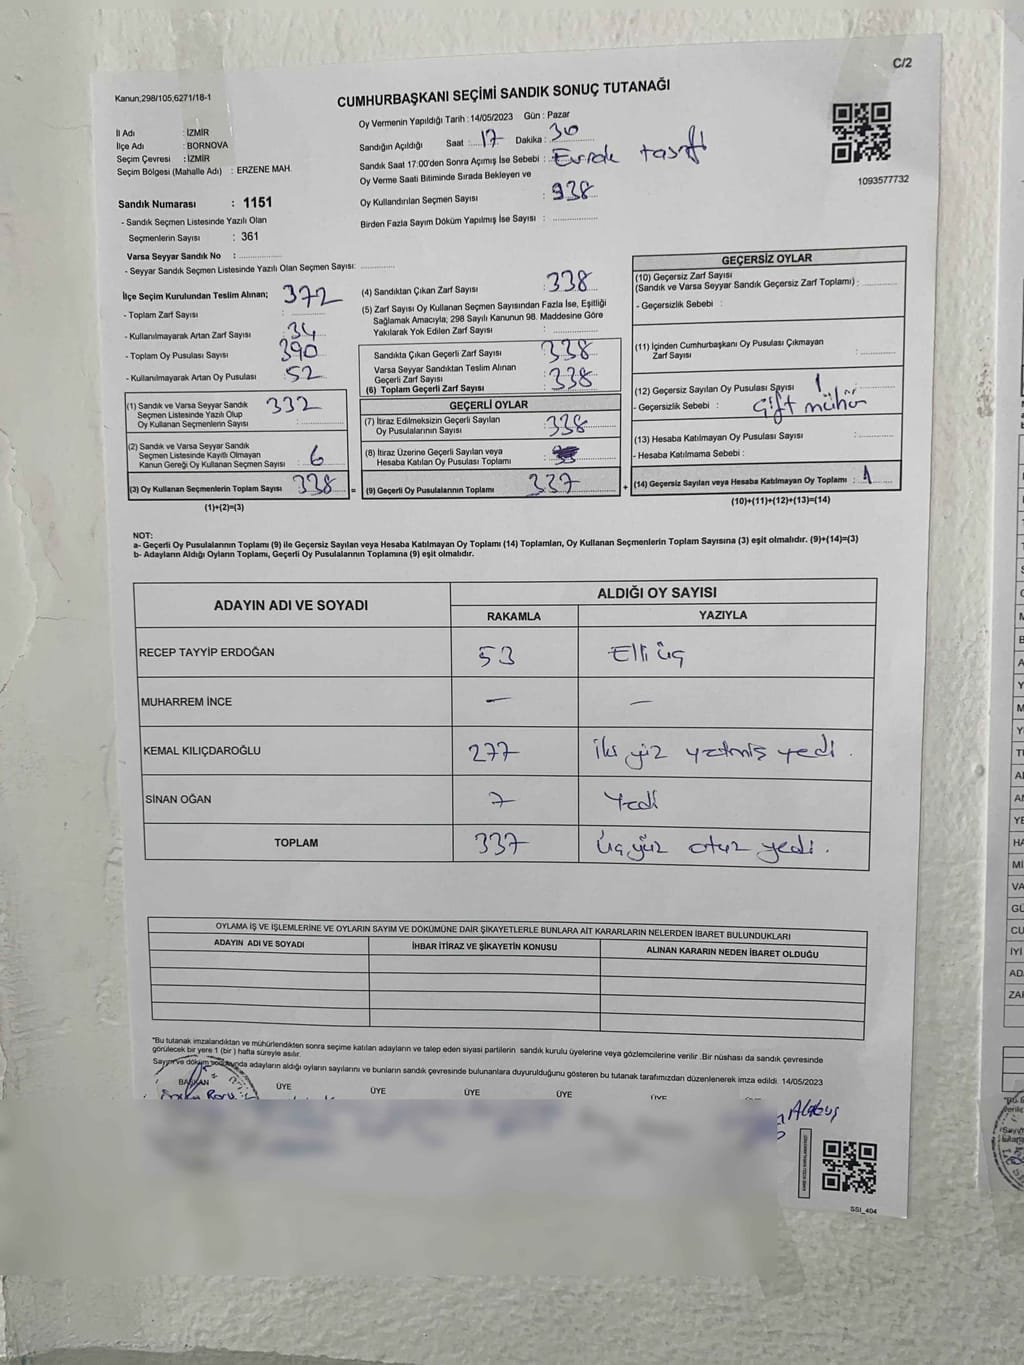 C/2
Kanun;298/105,6271/18-1
CUMHURBAŞKANI SEÇİMİ SANDIK SONUÇ TUTANAĞI
İl Adı : İZMİR
İlçe Adı : BORNOVA
Seçim Çevresi : İZMİR
Seçim Bölgesi (Mahalle Adı) : ERZENE MAH.
Oy Vermenin Yapıldığı Tarih : 14/05/2023 Gün : Pazar
Sandığın Açıldığı Saat : 17 Dakika : 30
Sandık Saat 17:00'den Sonra Açımış İse Sebebi : Evrak tasnifi
Oy Verme Saati Bitiminde Sırada Bekleyen ve
Oy Kullandırılan Seçmen Sayısı : 938
Birden Fazla Sayım Döküm Yapılmış İse Sayısı :
1093577732
Sandık Numarası : 1151
- Sandık Seçmen Listesinde Yazılı Olan
Seçmenlerin Sayısı : 361
Varsa Seyyar Sandık No :
- Seyyar Sandık Seçmen Listesinde Yazılı Olan Seçmen Sayısı:
İlçe Seçim Kurulundan Teslim Alınan; 372
- Toplam Zarf Sayısı :
- Kullanılmayarak Artan Zarf Sayısı : 34
- Toplam Oy Pusulası Sayısı : 390
- Kullanılmayarak Artan Oy Pusulası : 52
(1) Sandık ve Varsa Seyyar Sandık
Seçmen Listesinde Yazılı Olup
Oy Kullanan Seçmenlerin Sayısı : 332
(2) Sandık ve Varsa Seyyar Sandık
Seçmen Listesinde Kayıtlı Olmayan
Kanun Gereği Oy Kullanan Seçmen Sayısı : 6
(3) Oy Kullanan Seçmenlerin Toplam Sayısı 338 =
(1)+(2)=(3)
(4) Sandıktan Çıkan Zarf Sayısı : 338
(5) Zarf Sayısı Oy Kullanan Seçmen Sayısından Fazla İse, Eşitliği
Sağlamak Amacıyla; 298 Sayılı Kanunun 98. Maddesine Göre
Yakılarak Yok Edilen Zarf Sayısı :
Sandıkta Çıkan Geçerli Zarf Sayısı : 338
Varsa Seyyar Sandıktan Teslim Alınan
Geçerli Zarf Sayısı
(6) Toplam Geçerli Zarf Sayısı : 338
GEÇERLİ OYLAR
(7) İtiraz Edilmeksizin Geçerli Sayılan
Oy Pusulalarının Sayısı : 338
(8) İtiraz Üzerine Geçerli Sayılan veya
Hesaba Katılan Oy Pusulası Toplamı :
(9) Geçerli Oy Pusulalarının Toplamı : 337 +
GEÇERSİZ OYLAR
(10) Geçersiz Zarf Sayısı
(Sandık ve Varsa Seyyar Sandık Geçersiz Zarf Toplamı) :
- Geçersizlik Sebebi :
(11) İçinden Cumhurbaşkanı Oy Pusulası Çıkmayan
Zarf Sayısı :
(12) Geçersiz Sayılan Oy Pusulası Sayısı : 1
- Geçersizlik Sebebi : Çift mühür
(13) Hesaba Katılmayan Oy Pusulası Sayısı :
- Hesaba Katılmama Sebebi :
(14) Geçersiz Sayılan veya Hesaba Katılmayan Oy Toplamı : 1
(10)+(11)+(12)+(13)=(14)
NOT:
a- Geçerli Oy Pusulalarının Toplamı (9) ile Geçersiz Sayılan veya Hesaba Katılmayan Oy Toplamı (14) Toplamları, Oy Kullanan Seçmenlerin Toplam Sayısına (3) eşit olmalıdır. (9)+(14)=(3)
b- Adayların Aldığı Oyların Toplamı, Geçerli Oy Pusulalarının Toplamına (9) eşit olmalıdır.
ADAYIN ADI VE SOYADI ALDIĞI OY SAYISI
RAKAMLA YAZIYLA
RECEP TAYYİP ERDOĞAN 53 Elli üç
MUHARREM İNCE — —
KEMAL KILIÇDAROĞLU 277 iki yüz yetmiş yedi.
SİNAN OĞAN 7 Yedi
TOPLAM 337 Üçyüz otuz yedi.
OYLAMA İŞ VE İŞLEMLERİNE VE OYLARIN SAYIM VE DÖKÜMÜNE DAİR ŞİKAYETLERLE BUNLARA AİT KARARLARIN NELERDEN İBARET BULUNDUKLARI
ADAYIN ADI VE SOYADI İHBAR İTİRAZ VE ŞİKAYETİN KONUSU ALINAN KARARIN NEDEN İBARET OLDUĞU
*Bu tutanak imzalandıktan ve mühürlendikten sonra seçime katılan adayların ve talep eden siyasi partilerin sandık kurulu üyelerine veya gözlemcilerine verilir .Bir nüshası da sandık çevresinde
görülecek bir yere 1 (bir) hafta süreyle asılır.
Sayım ve döküm sonunda adayların aldığı oyların sayılarını ve bunların sandık çevresinde bulunanlara duyurulduğunu gösteren bu tutanak tarafımızdan düzenlenerek imza edildi. 14/05/2023
BAŞKAN ÜYE ÜYE ÜYE ÜYE ÜYE
SSİ_404